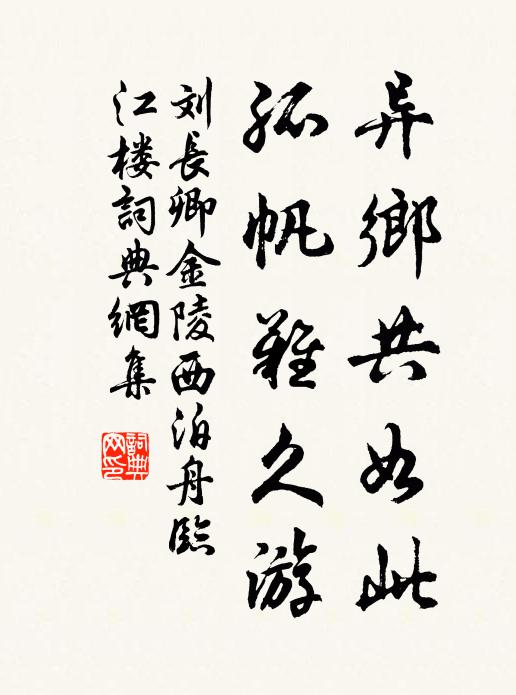 异鄉共如此
孤帆難久游
刘長卿金陵西泊舟臨
江楼詞典網集
詞典
网印